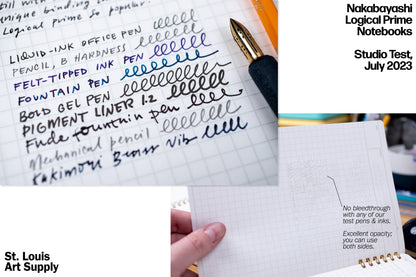 still with
unique binding
Logical Prime so popular.
LIQUID-INK OFFICE PEN
PENCIL, B HARDNESS
FELT-TIPPED INK PEN
FOUNTAIN PEN
BOLD GEL PEN
PIGMENT LINER 1.2
Fude fountain pen
Mechanical pencil
Kakimori Brass Nib
Nakabayashi
Logical Prime
Notebooks
Studio Test,
July 2023
No bleedthrough
with any of our
test pens & inks.
Excellent opacity;
you can use
both sides.
St. Louis
Art Supply